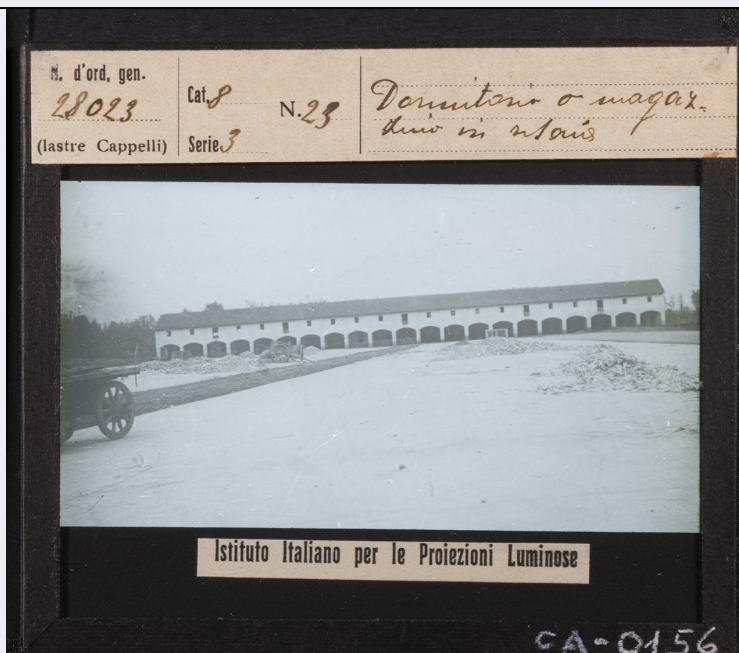 N. d'ord. gen.
28023
(lastre Cappelli)
Cat. 8
Serie 3
N. 23
Dormitorio o magaz-
zino in risaia
Istituto Italiano per le Proiezioni Luminose
CA-0156